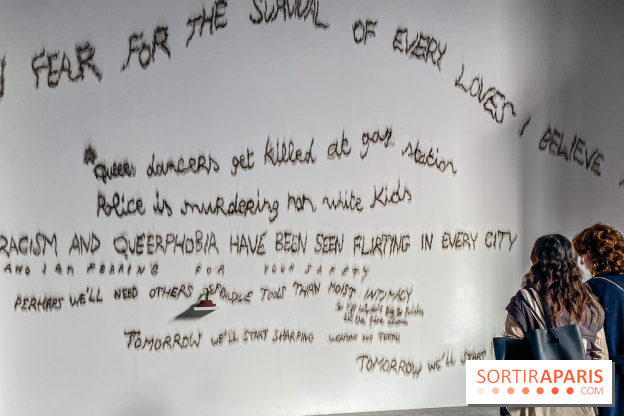 I FEAR FOR THE SURVIVAL OF EVERY LOVES I BELIEVE
Queer dancers get killed at gaz station
Police is murdering non white kids
RACISM AND QUEERPHOBIA HAVE BEEN SEEN FLIRTING IN EVERY CITY
AND I AM FEARING FOR YOUR SAFETY
PERHAPS WE'LL NEED OTHERS DEFENDIVE TOOLS THAN MOIST INTIMACY
TOMORROW WE'LL START SHARPING WEAPONS AND TEETH
TOMORROW WE'LL START
SORTIRAPARIS
.COM